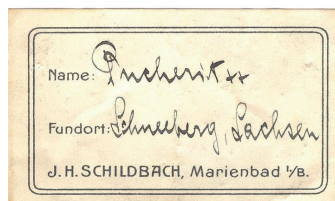 Name: Pucherit ++
Fundort: Schneeberg, Sachsen
J. H. SCHILDBACH, Marienbad i/B.